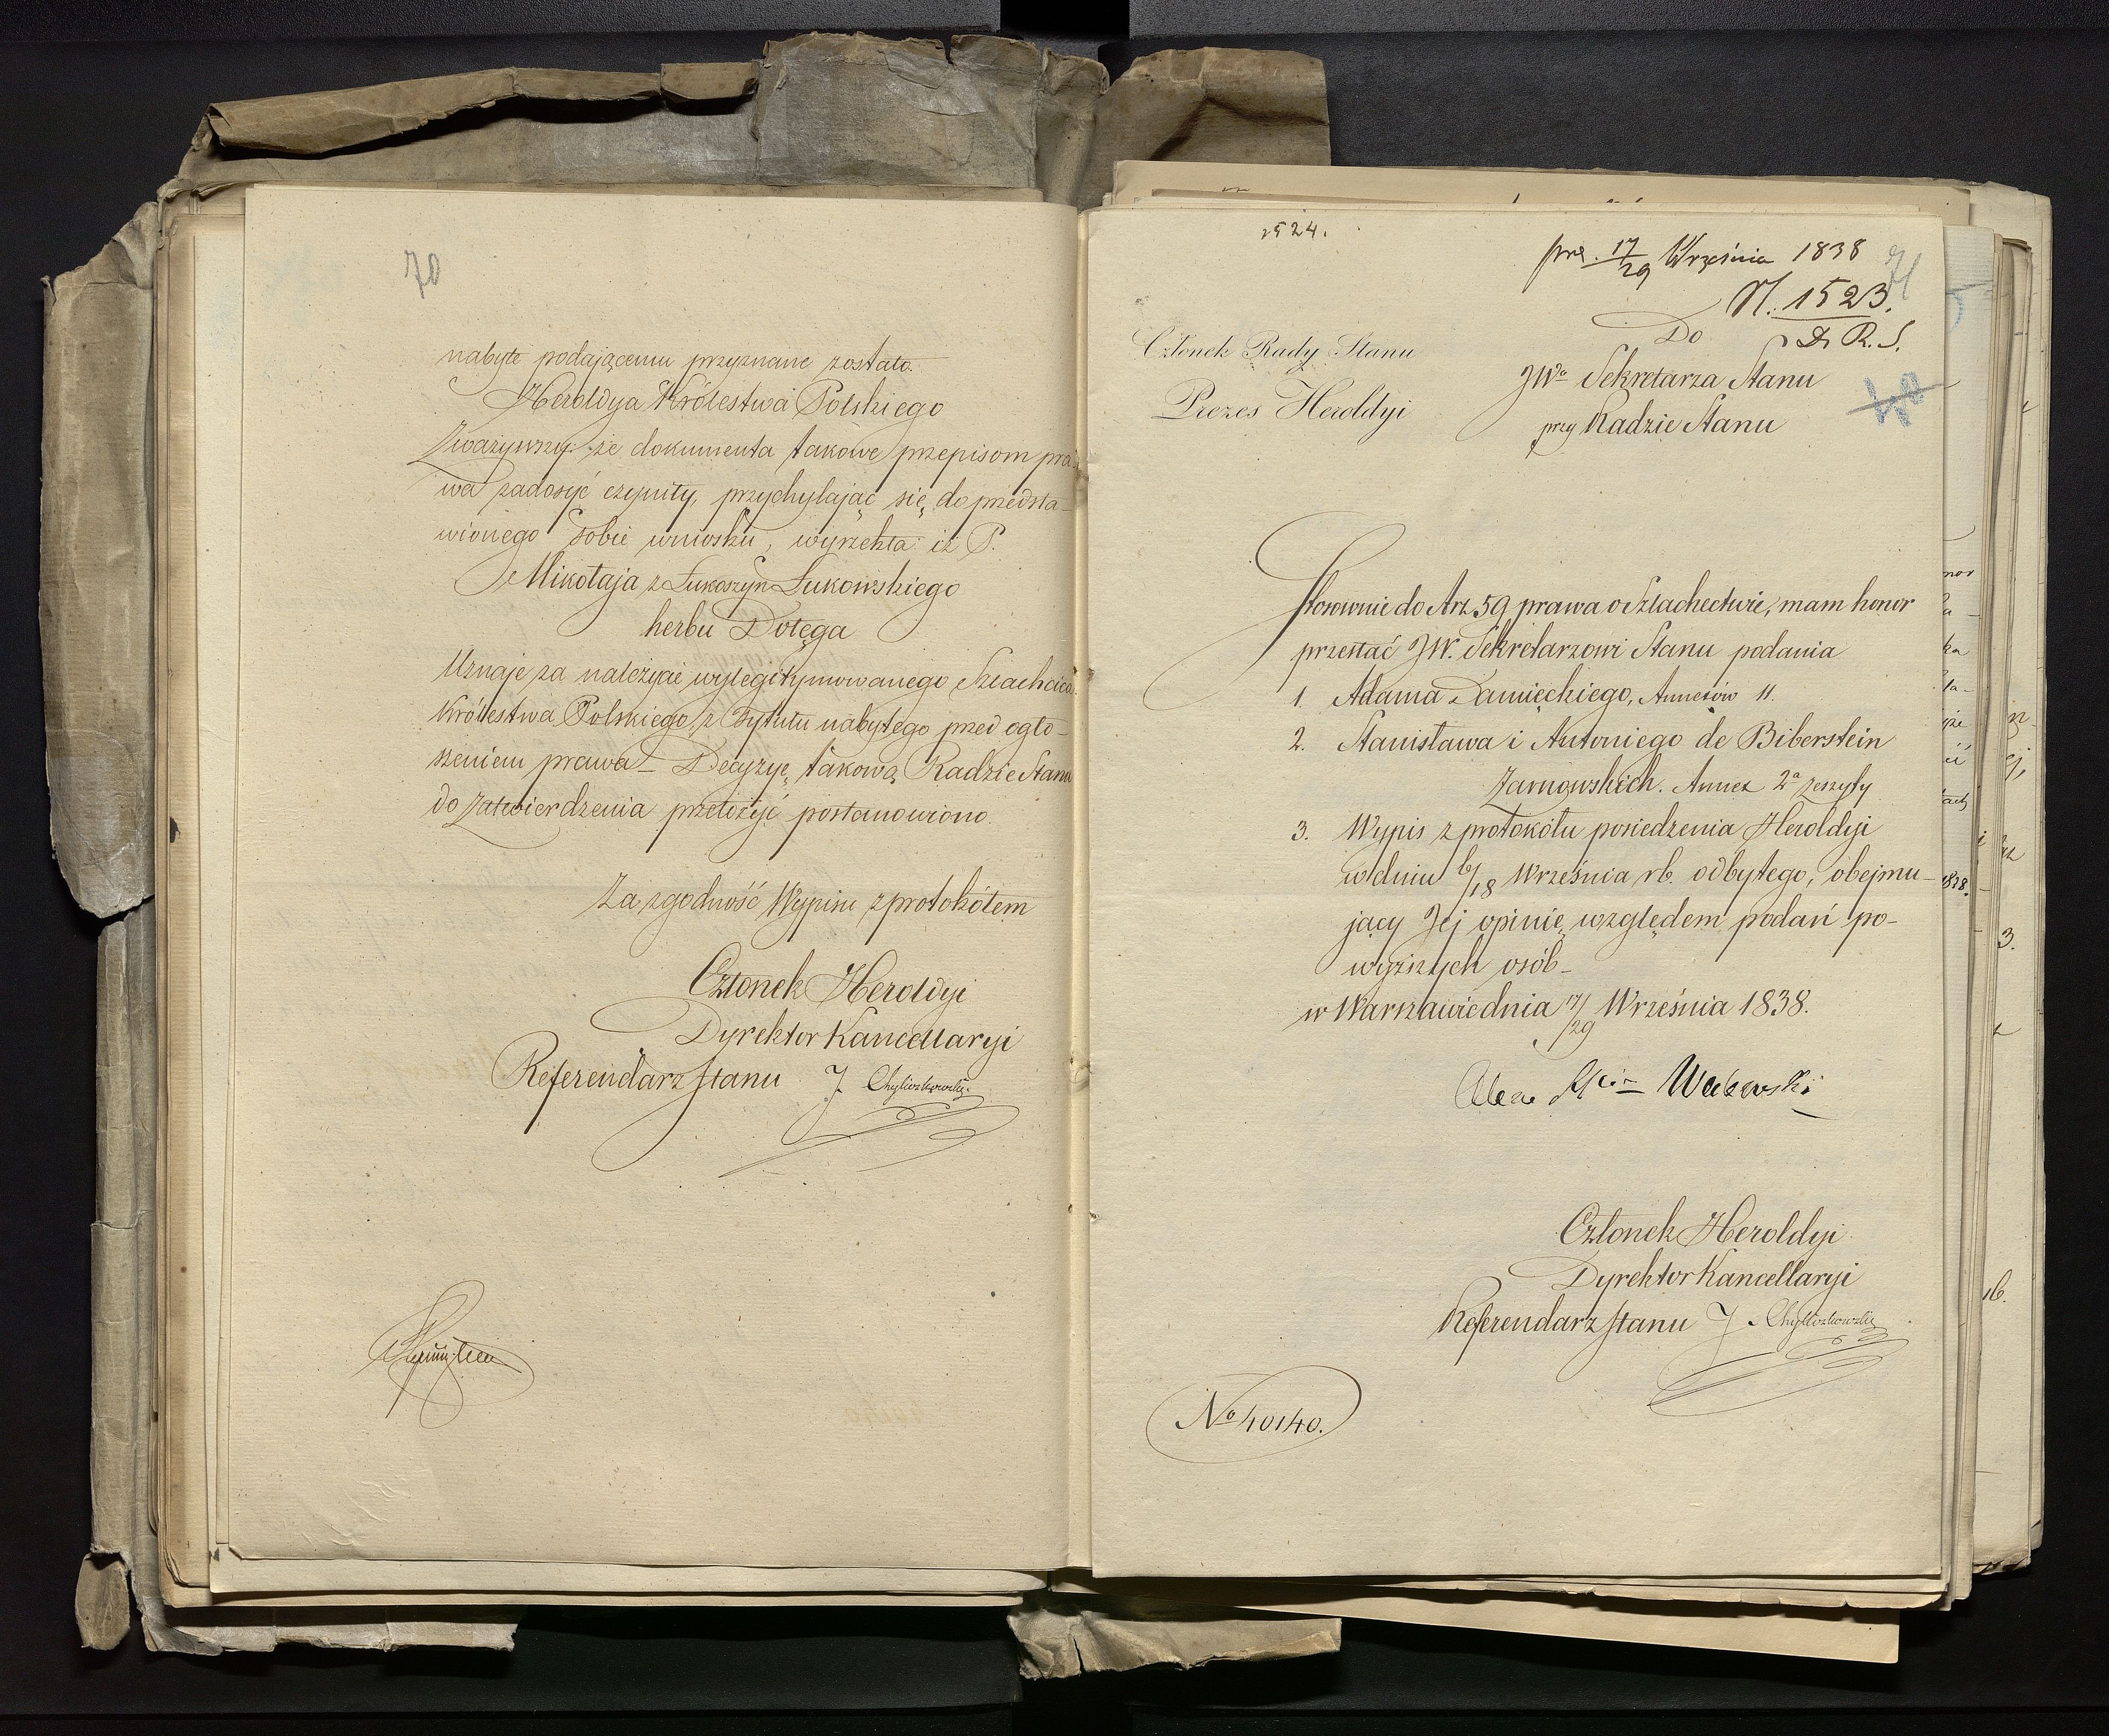 70
nabyte podającemu przyznane zostało.
Heroldya Królestwa Polskiego
Zważywszy: że dokumenta takowe przepisom pra-
wa zadosyć czyniły, przychylając się do przedsta-
wionego sobie wniosku, wyrzekła: iż P.
Mikołaja z Łukoszyn Łukowskiego
herbu Dołęga
Uznaje za należycie wylegitymowanego Szlachcica
Królestwa Polskiego, z Tytułu nabytego przed ogło-
szeniem prawa – Decyzyę takową Radzie Stanu
do zatwierdzenia przełożyć postanowiono.
Za zgodność Wypisu z protokółem
Członek Heroldyi
Dyrektor Kancellaryi
Referendarz Stanu J Chyliczkowski
1524.
prez. 17/29 Września 1838
71
N. 1523.
D. R. S.
Członek Rady Stanu
Prezes Heroldyi
Do
JWo Sekretarza Stanu
przy Radzie Stanu
Stosownie do Art. 59 prawa o Szlachectwie, mam honor
przesłać JW. Sekretarzowi Stanu podania
1. Adama Damięckiego, Annexów 11.
2. Stanisława i Antoniego de Biberstein
Zarnowskich. Annex 2a zeszyty
3. Wypis z protokółu posiedzenia Heroldyi
w dniu 6/18 Września rb. odbytego, obejmu-
jący Jej opinię względem podań po-
wyższych osób –
w Warszawie dnia 17/29 Września 1838.
Colonna Walewski
Członek Heroldyi
Dyrektor Kancellaryi
Referendarz Stanu J. Chyliczkowski
No 40140.